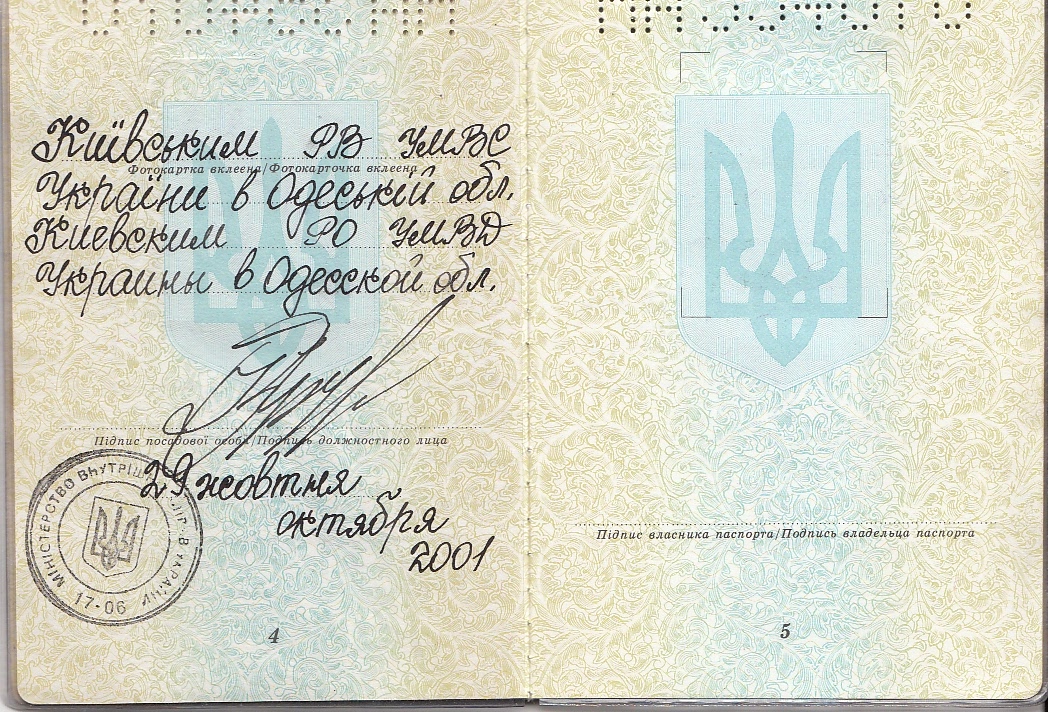 Київським РВ УМВС
Фотокартка вклеена/Фотокарточка вклеена
України в Одеській обл.
Киевским РО УМВД
Украины в Одесской обл.
Підпис посадової особи/Подпись должностного лица
29 жовтня
октября
2001
МІНІСТЕРСТВО ВНУТРІШНІХ СПРАВ УКРАЇНИ
17-06
4
Підпис власника паспорта/Подпись владельца паспорта
5